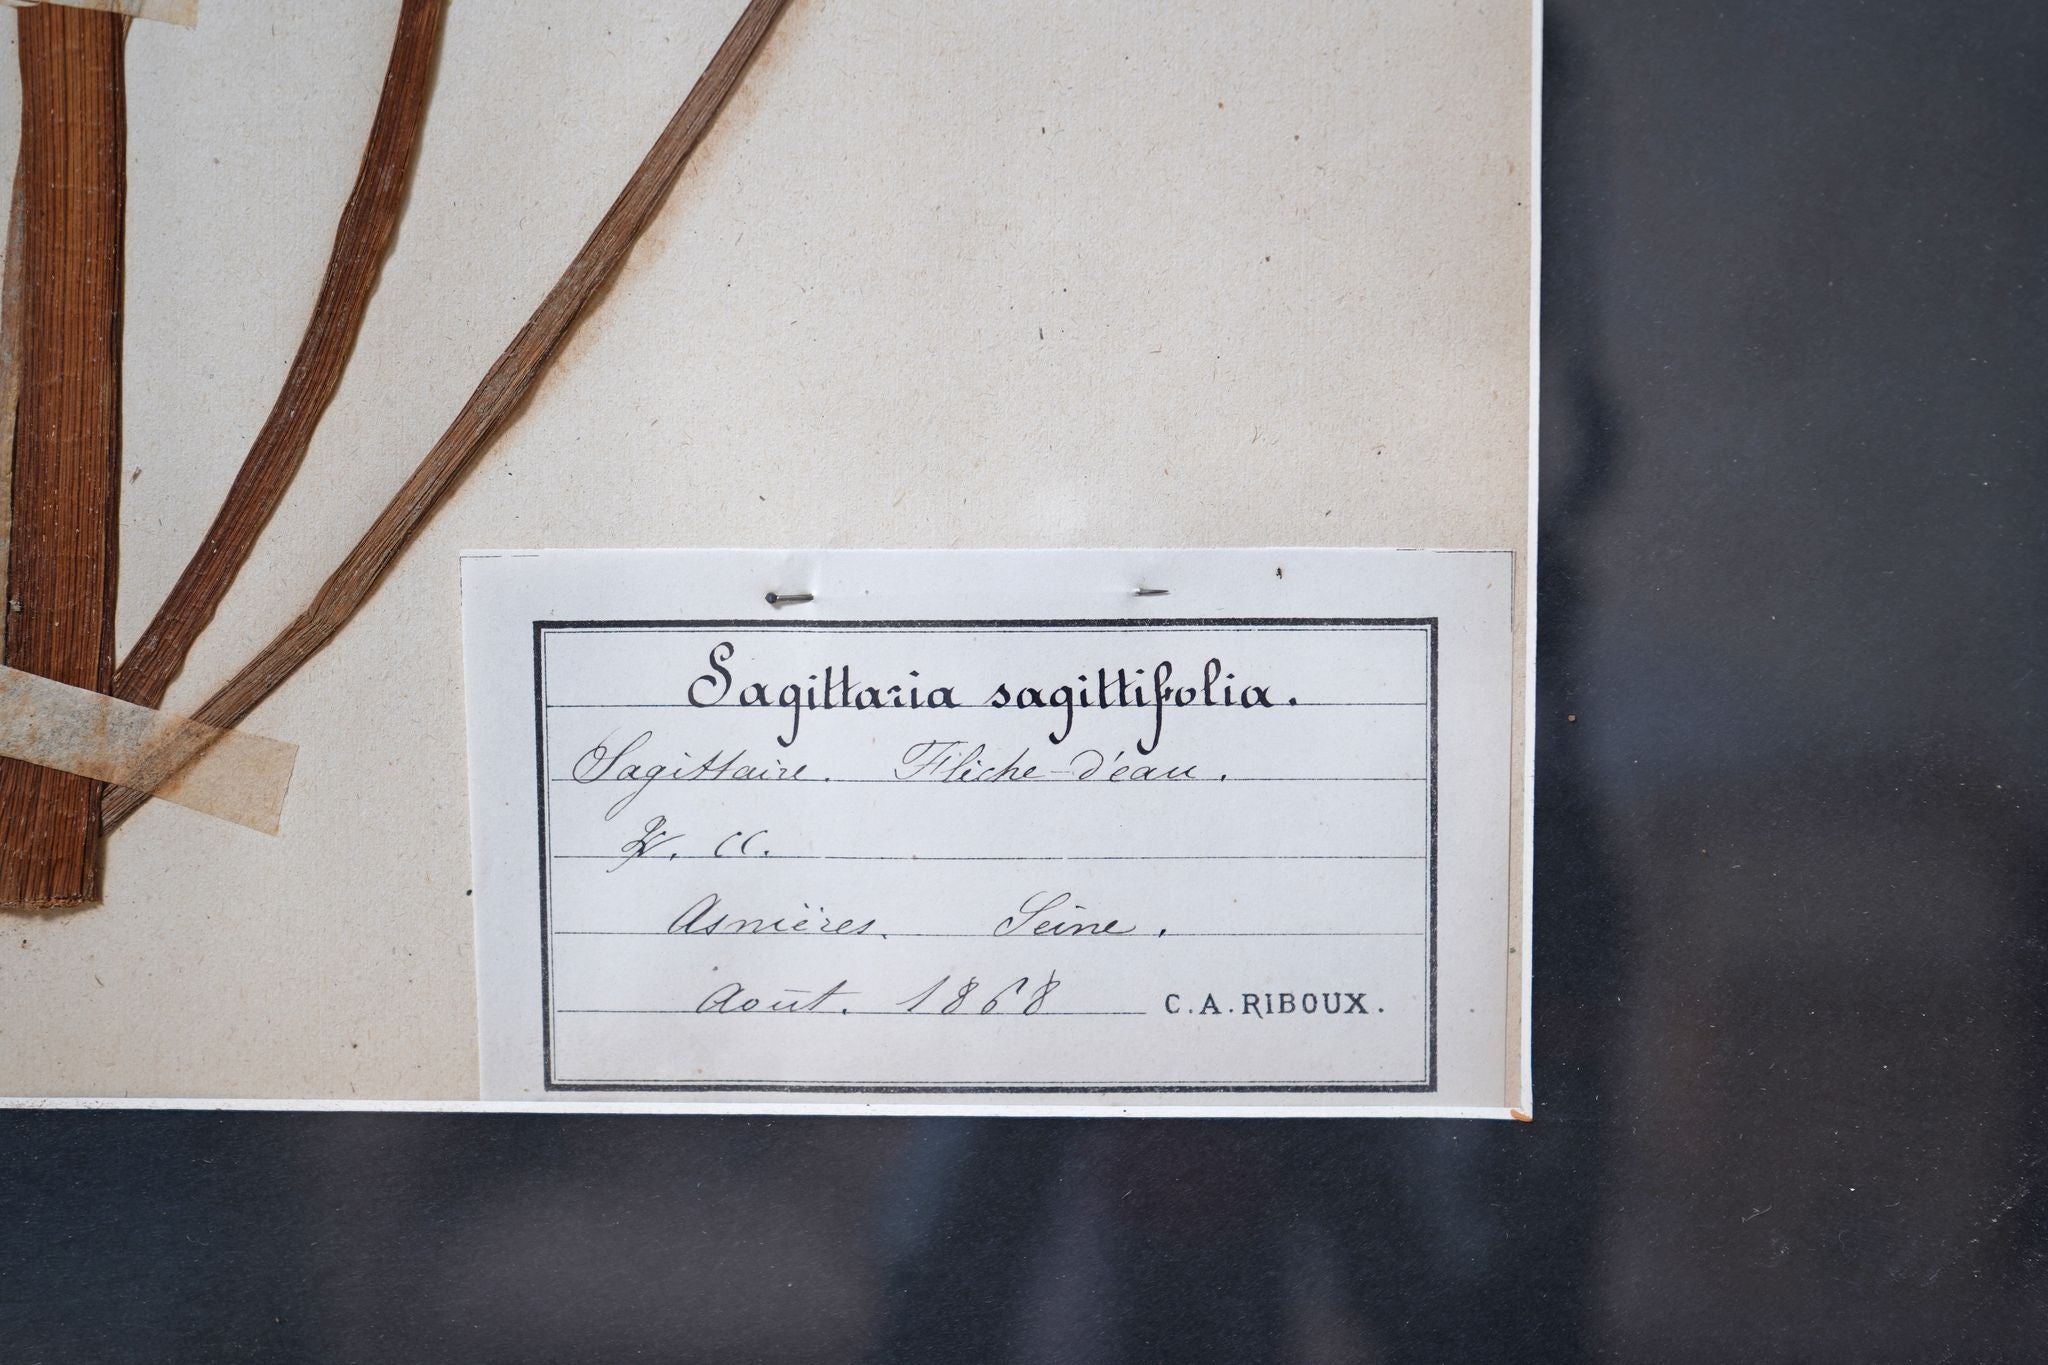 Sagittaria sagittifolia.
Sagittaire. Flèche-d'eau.
cc.
Asnières. Seine.
Août. 1868 C.A. RIBOUX.